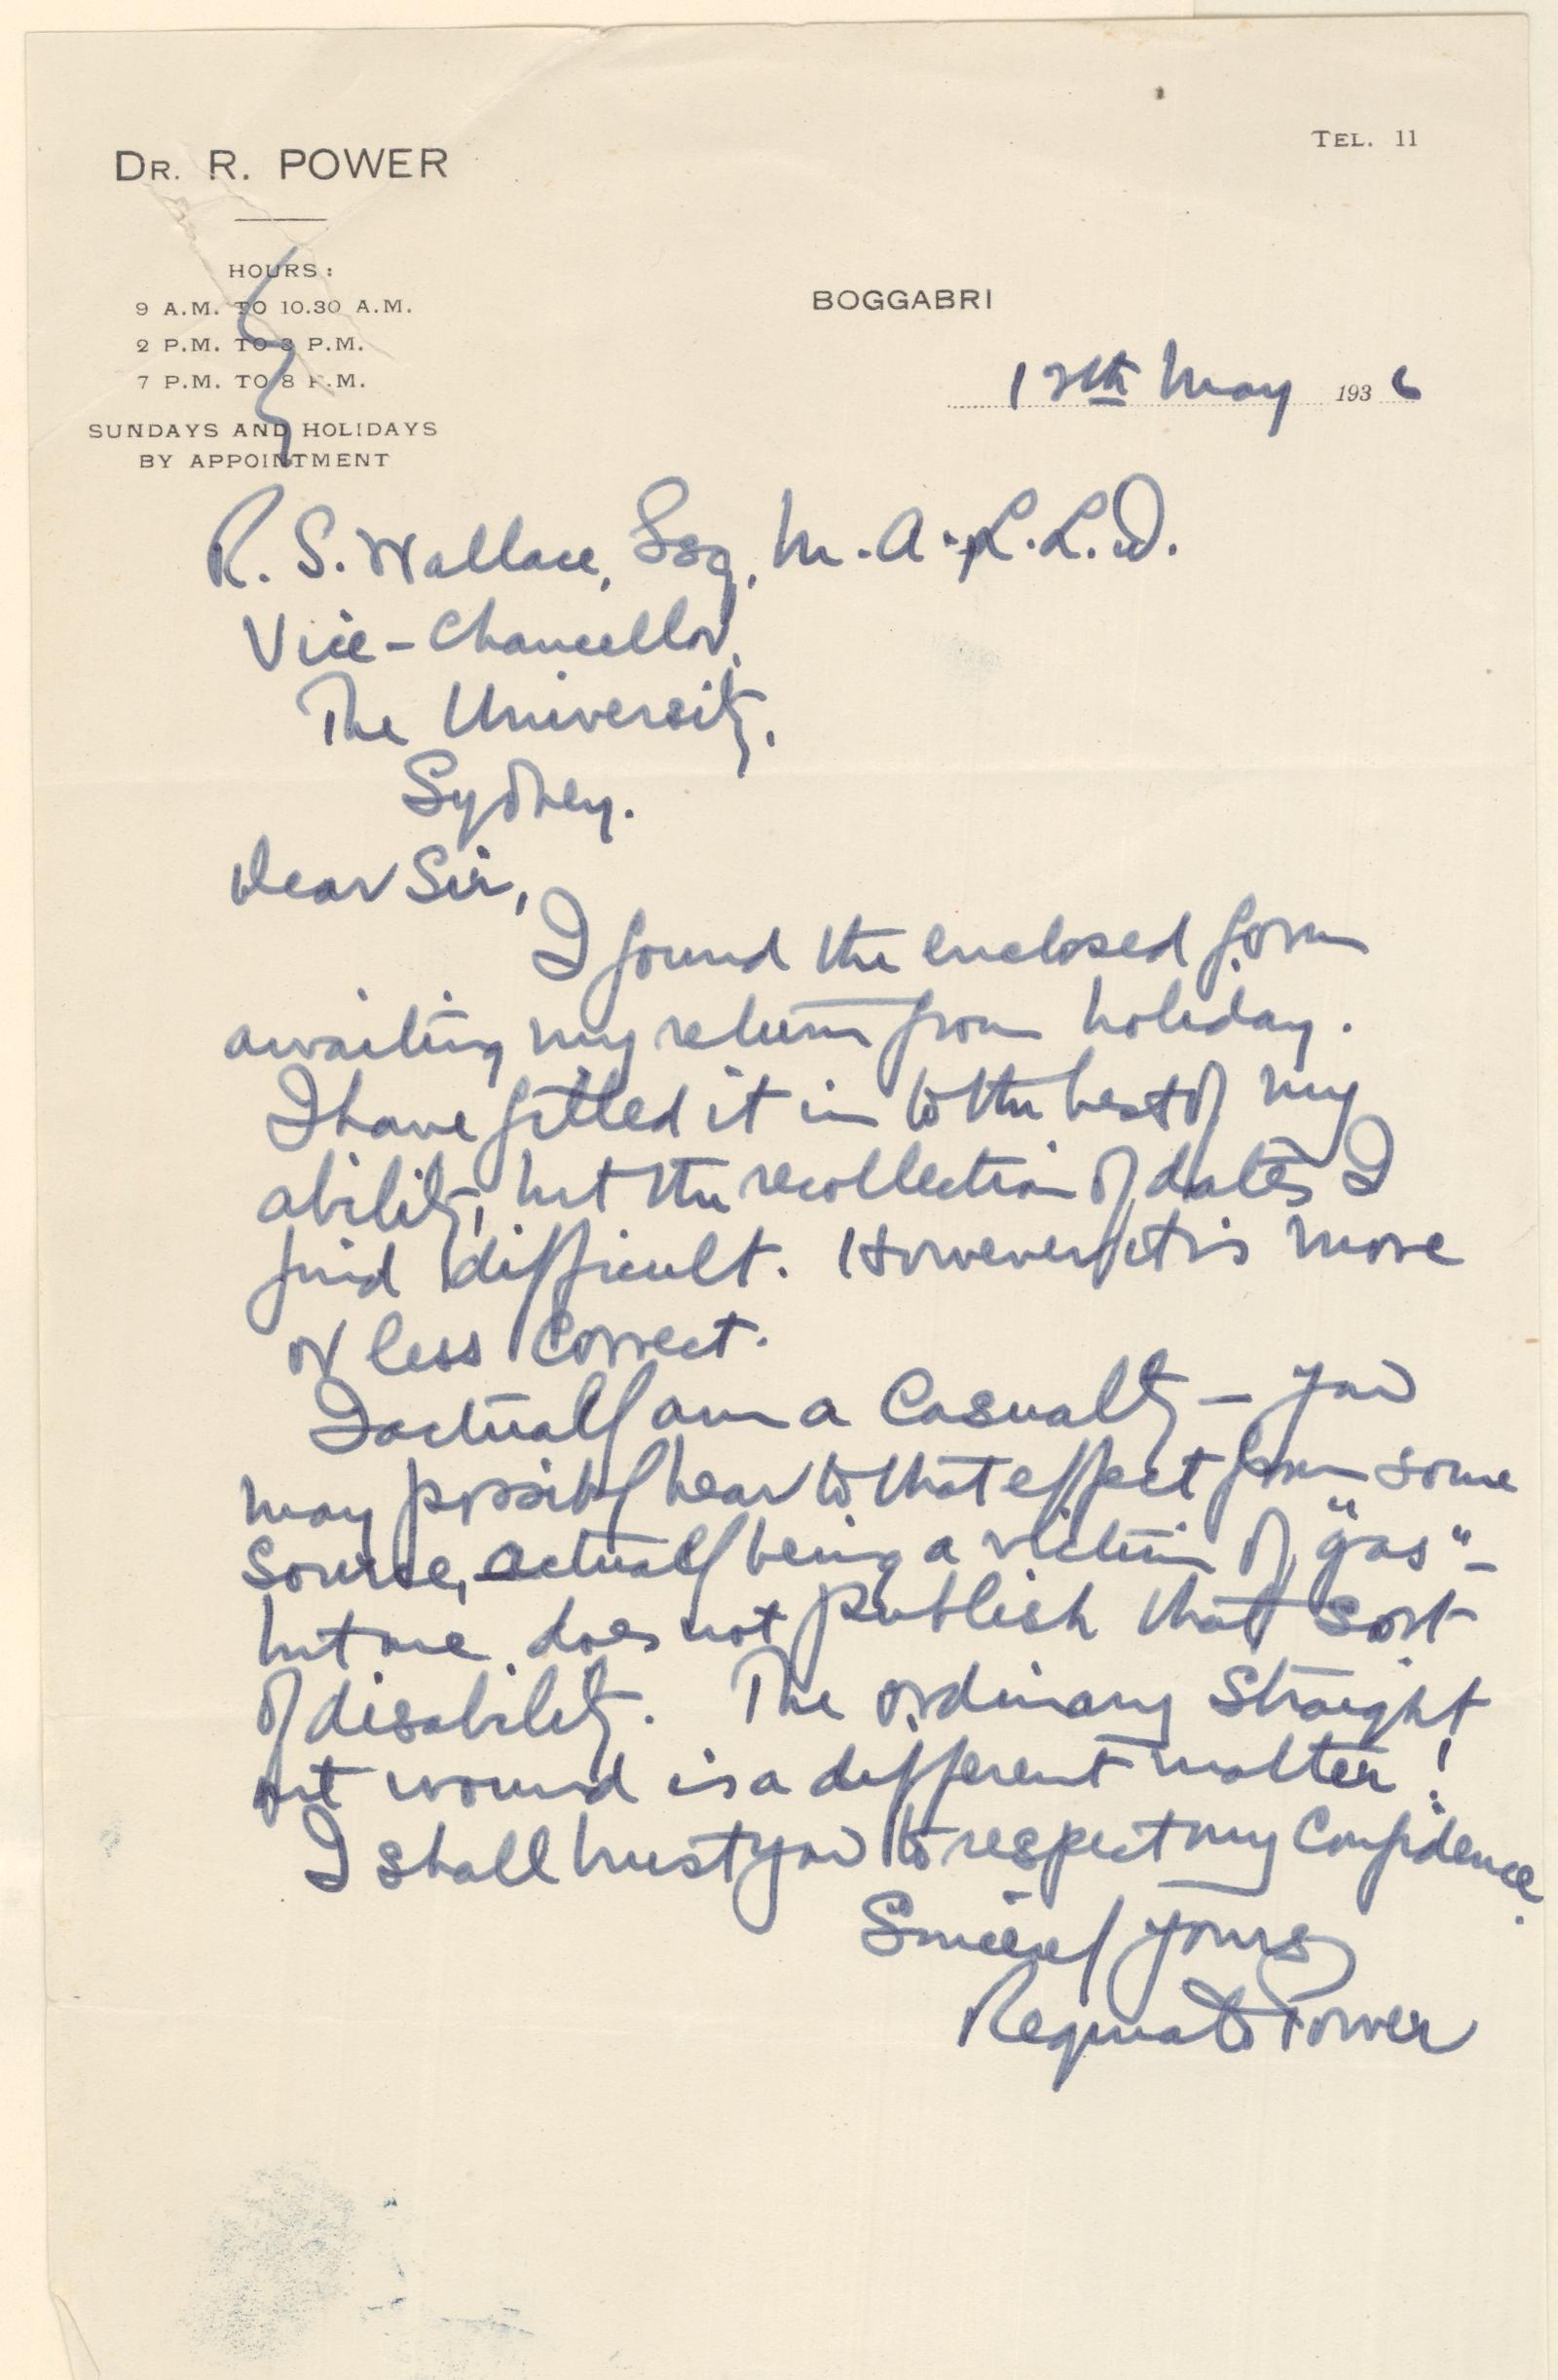 DR. R. POWER
TEL. 11
HOURS:
9 A.M. TO 10.30 A.M.
2 P.M. TO 3 P.M.
7 P.M. TO 8 P.M.
SUNDAYS AND HOLIDAYS
BY APPOINTMENT
BOGGABRI
12th May 1936
R. S. Wallace, Esq, M.A., L.L.D.
Vice-Chancellor,
The University,
Sydney.
Dear Sir,
I found the enclosed form
awaiting my return from holiday.
I have filled it in to the best of my
ability, but the recollection of dates I
find difficult. However, it is more
or less correct.
I actually am a casualty - you
may possibly hear to that effect from some
source, actually being a victim of "gas" -
but one does not publish that sort
of disability. The ordinary straight
out wound is a different matter!
I shall trust you to respect my confidence.
Sincerely yours
Reginald Power